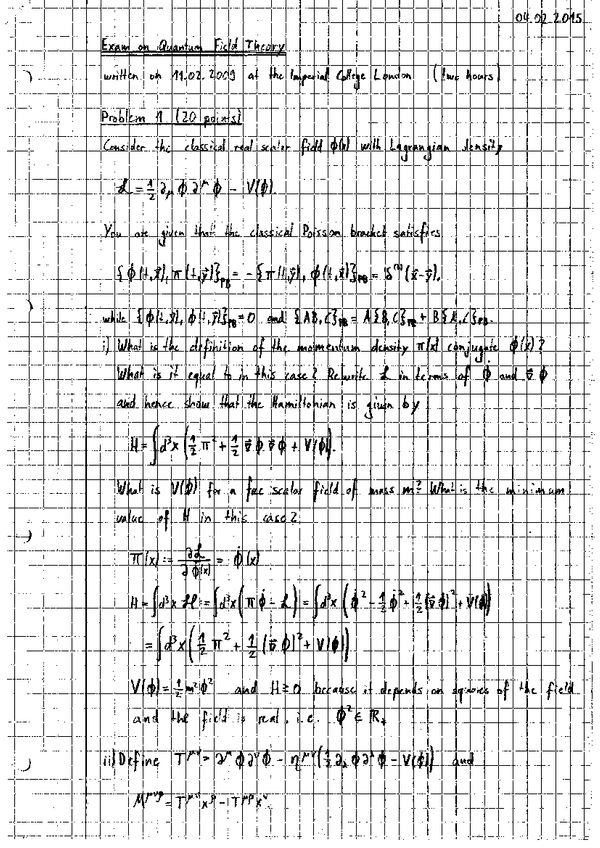 04.02.2015
Exam on Quantum Field Theory
written on 11.02.2009 at the Imperial College London (two hours)
Problem 1 (20 points)
Consider the classical real scalar field ϕ(x) with Lagrangian density
ℒ = 1/2 ∂_μ ϕ ∂^μ ϕ − V(ϕ).
You are given that the classical Poisson bracket satisfies
{ϕ(t,x⃗), π(t,y⃗)}_PB = −{π(t,y⃗), ϕ(t,x⃗)}_PB = δ^(3)(x⃗−y⃗),
while {ϕ(t,x⃗), ϕ(t,y⃗)}_PB = 0 and {AB,C}_PB = A{B,C}_PB + B{A,C}_PB.
i) What is the definition of the momentum density π(x) conjugate ϕ(x)?
What is it equal to in this case? Rewrite ℒ in terms of ϕ̇ and ∇⃗ϕ
and hence show that the Hamiltonian is given by
H = ∫d³x (1/2 π² + 1/2 ∇⃗ϕ·∇⃗ϕ + V(ϕ)).
What is V(ϕ) for a free scalar field of mass m? What is the minimum
value of H in this case?
π(x) := ∂ℒ/∂ϕ̇(x) = ϕ̇(x)
H = ∫d³x ℋ := ∫d³x (πϕ̇ − ℒ) = ∫d³x (ϕ̇² − 1/2 ϕ̇² + 1/2 (∇⃗ϕ)² + V(ϕ))
= ∫d³x (1/2 π² + 1/2 (∇⃗ϕ)² + V(ϕ))
V(ϕ) = 1/2 m²ϕ² and H ≥ 0 because it depends on squares of the field
and the field is real, i.e. ϕ² ∈ ℝ₊
ii) Define T^μν = ∂^μ ϕ ∂^ν ϕ − η^μν (1/2 ∂_λ ϕ ∂^λ ϕ − V(ϕ)) and
M^μνρ = T^μν x^ρ − T^μρ x^ν.